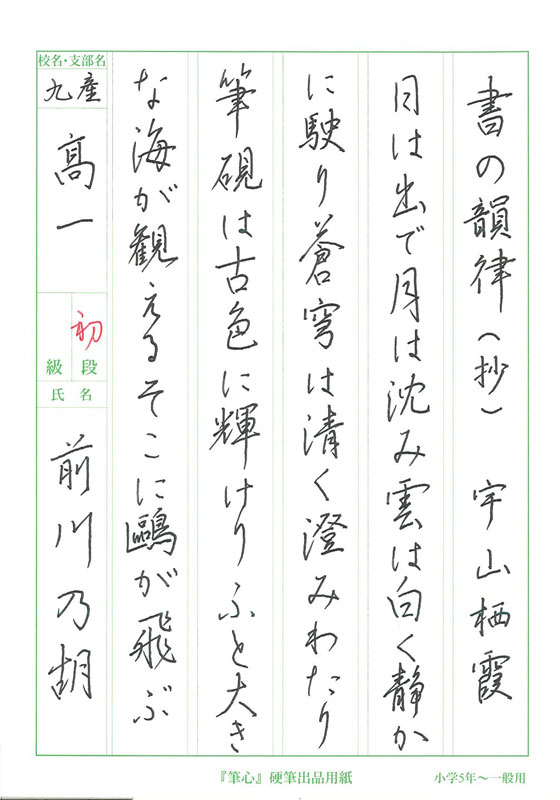 書の韻律(抄) 宇山栖霞
日は出で月は沈み雲は白く静か
に駛り蒼穹は清く澄みわたり
筆硯は古色に輝けりふと大き
な海が観えるそこに鷗が飛ぶ
校名・支部名
九産
高一
初
段級
氏名
前川乃胡
『筆心』硬筆出品用紙
小学5年～一般用